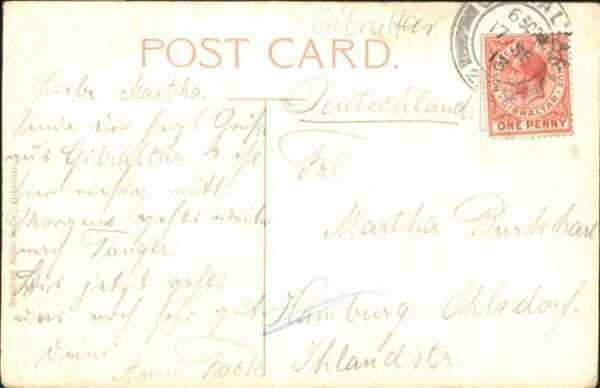 Gibraltar
POST CARD.
Liebe Martha.
Sende dir hrzl Grüße
aus Gibraltar es ist
hier riesig nett.
Morgen gehts weiter
nach Tanger
Bis jetzt gehts
uns noch sehr gut
Deine
Anna
Deutschland.
Frl
Martha Burkhart
Hamburg Ohlsdorf.
Ihlandstr.
6 30PM
17
GIBRALTAR
ONE PENNY
Beanland, Malin & Co., Gibraltar.